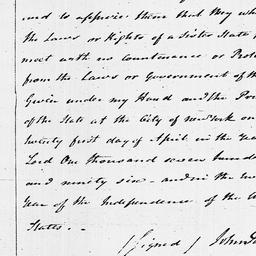 and to apprise them that they who
the Laws or Rights of a Sister State
meet with no countenance or Prote
from the Laws or Government of th
Given under my Hand and the Pr
of the State at the City of new York on
twenty first day of April in the year
Lord One thousand seven hund
and ninty six - and in the twe
Year of the Independence of the U
States. -
(Signed) John